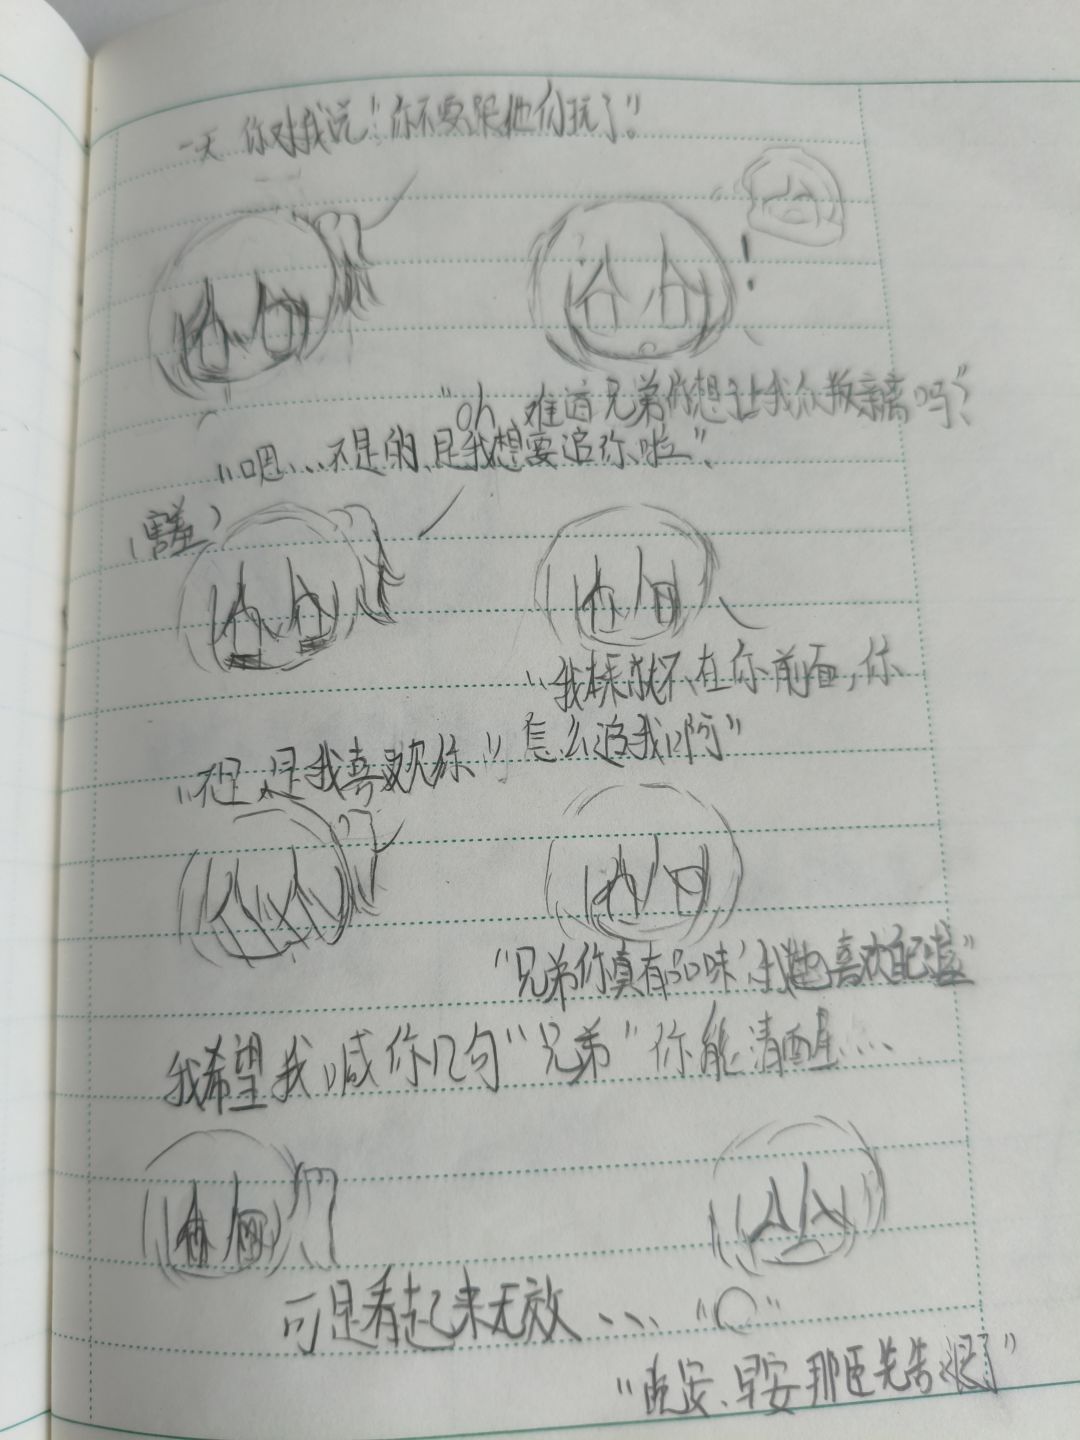 一天 你对我说："你不要跟他们玩了"
"oh,难道兄弟你想让我众叛亲离吗?"
"嗯...不是的,是我想要追你啦"
(害羞)
"我本来就不在你前面,你
怎么追我啊"
"不是,是我喜欢你"
"兄弟你真有品味,我也喜欢自己"
我希望我喊你几句"兄弟"你能清醒...
可是看起来无效...
"晚安、早安那臣先告退了"